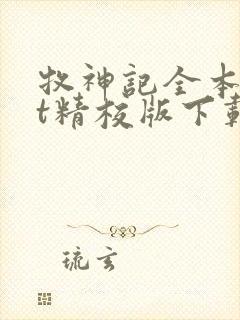 牧神記全本
t精校版下載
琉玄